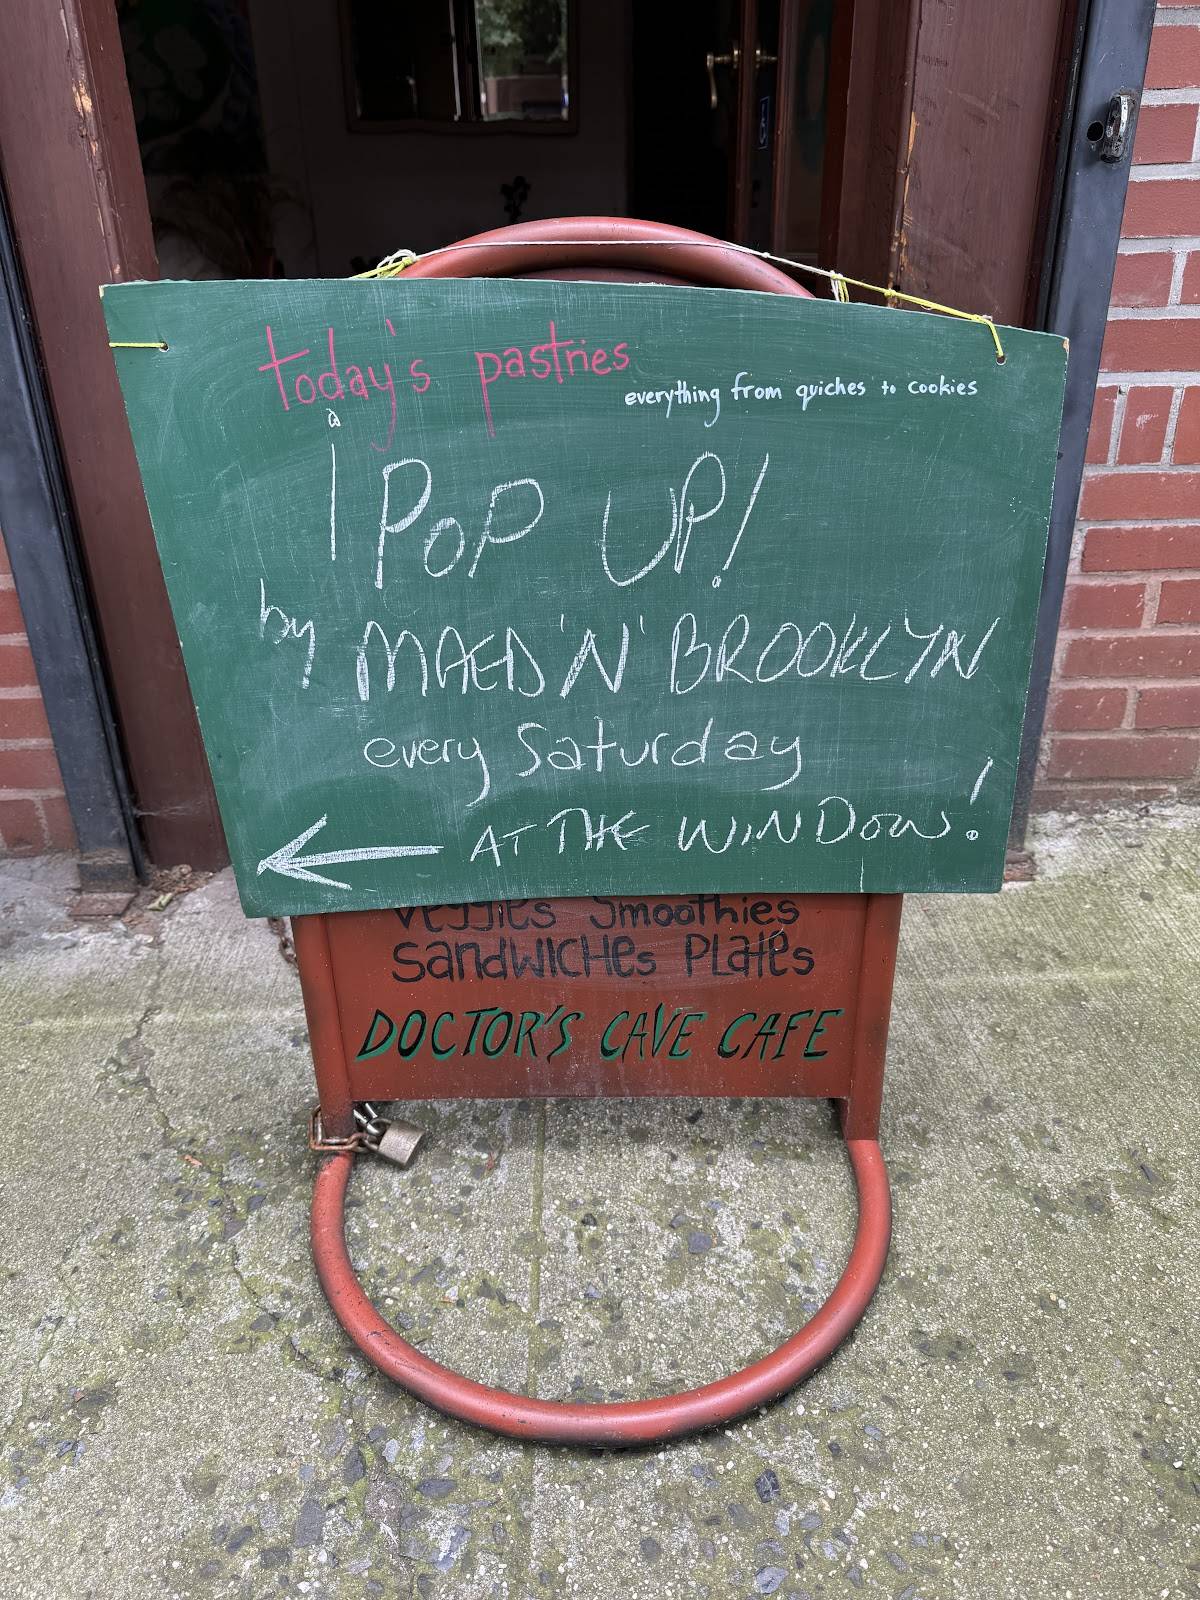 today's pastries
everything from quiches to cookies
¡POP UP!
by MAED 'N' BROOKLYN
every Saturday
← AT THE WINDOW!
Veggies Smoothies
SandwicHes Plates
DOCTOR'S CAVE CAFE